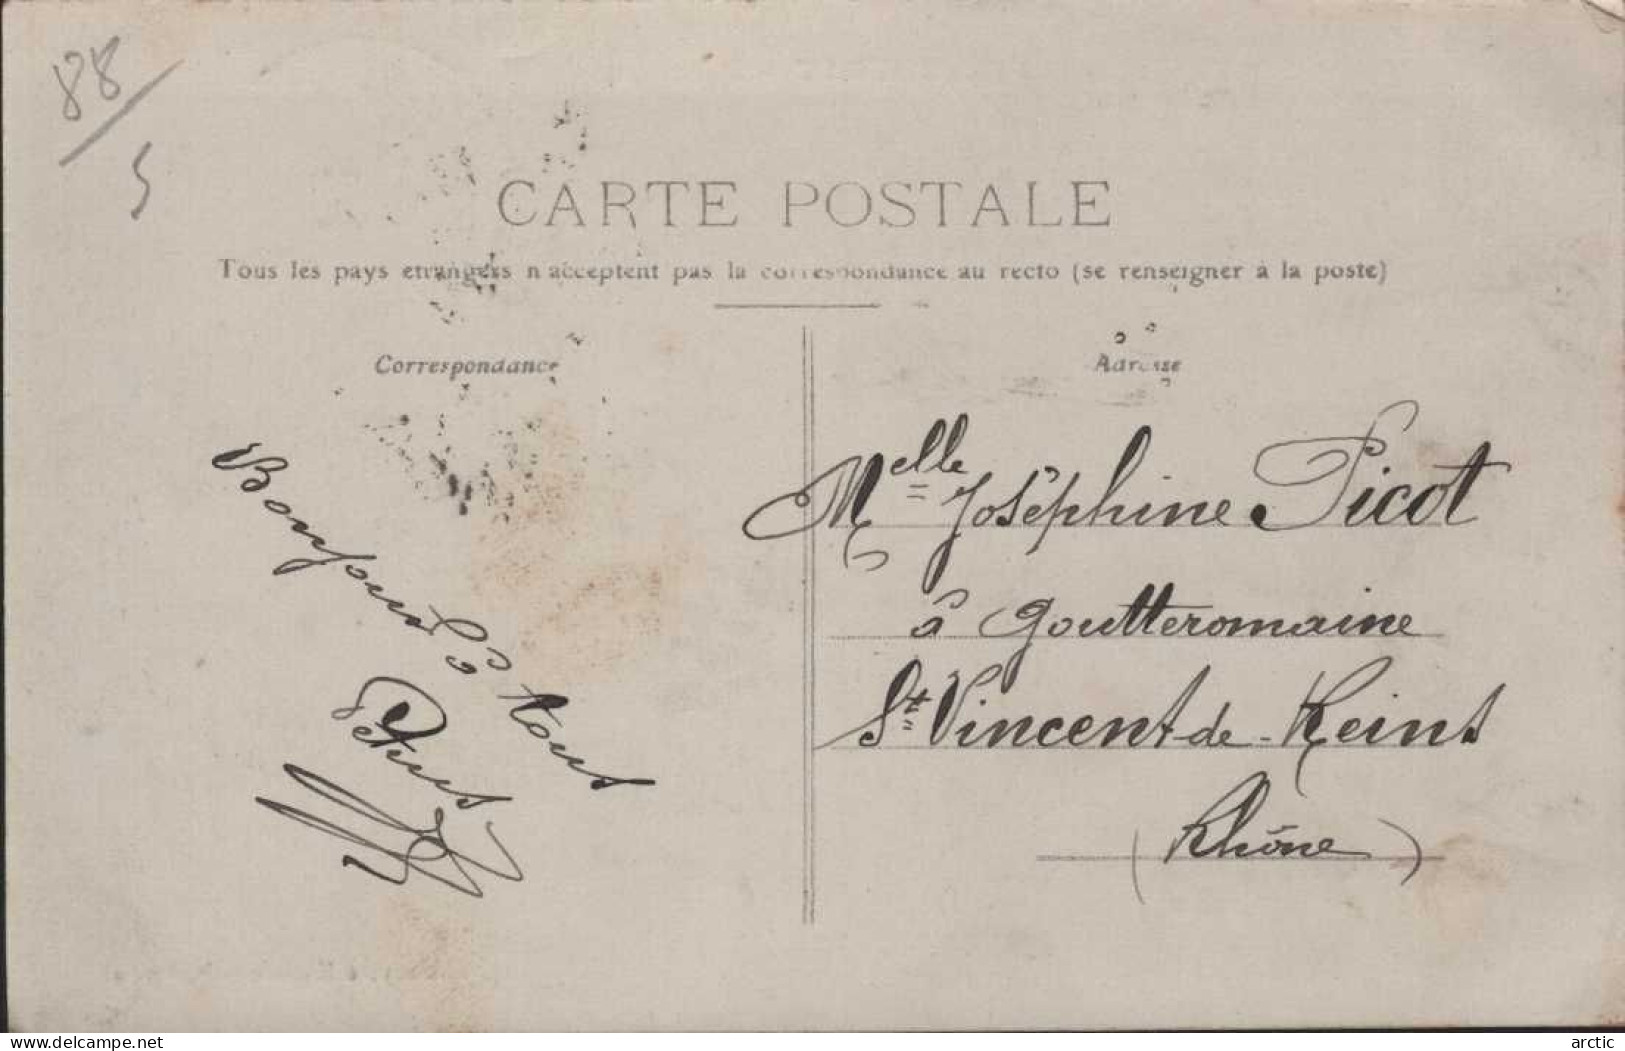 88/5
CARTE POSTALE
Tous les pays etrangers n'acceptent pas la correspondance au recto (se renseigner à la poste)
Correspondance
Adresse
Bonjour à tous
Melle Joséphine Picot
à Goutteromaine
St Vincent-de-Reins
(Rhône)
www.delcampe.net
arctic